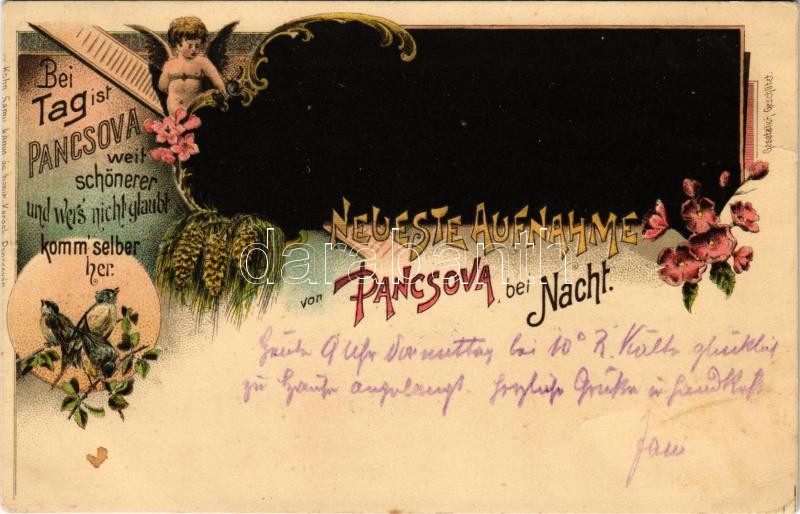 Bei
Tag ist
PANCSOVA
weit
schönerer
und wer's nicht glaubt
komm' selber
her.
NEUESTE AUFNAHME
von PANCSOVA bei Nacht.
Gesetzlich Geschützt.
darabanth
Heute 9 Uhr Vormittag bei 10° R. Kälte glücklich
zu Hause angelangt. Herzliche Grüße u Handkuß